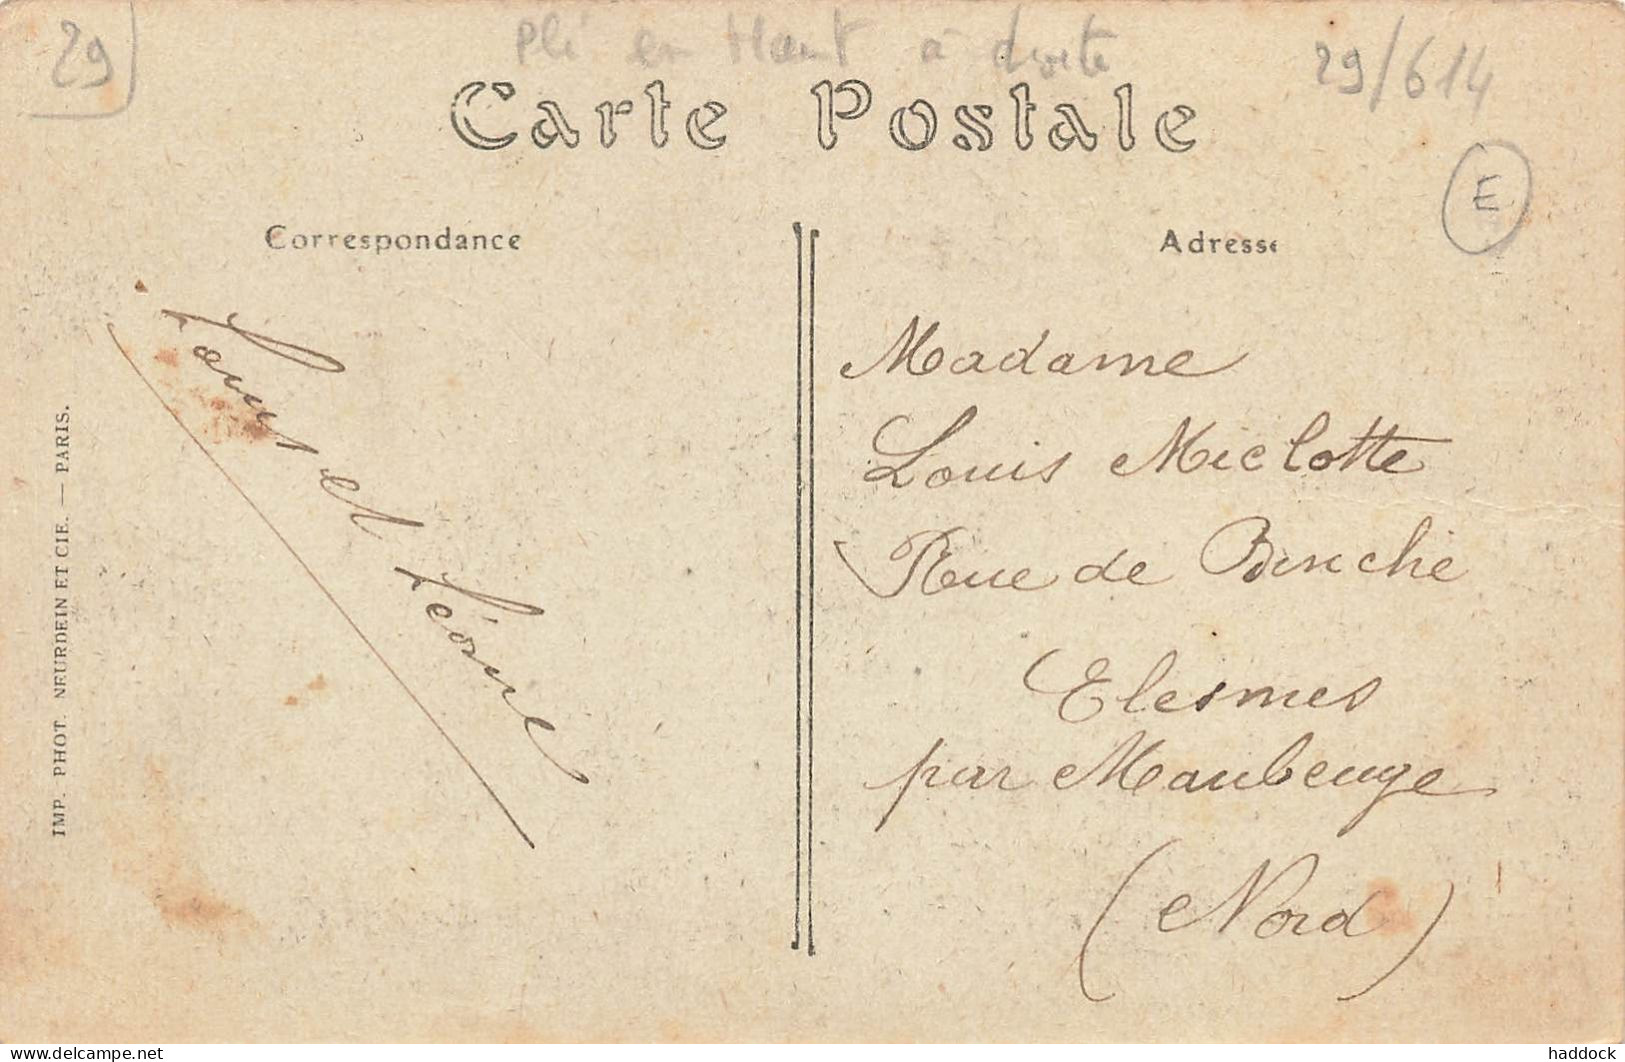 29
Plé en Haut à droite
29/614
Carte Postale
E
Correspondance
Adresse
et Léonie
Madame
Louis Miclotte
Rue de Binche
Elesmes
par Maubeuge
(Nord)
IMP. PHOT. NEURDEIN ET CIE. — PARIS.
www.delcampe.net
haddock